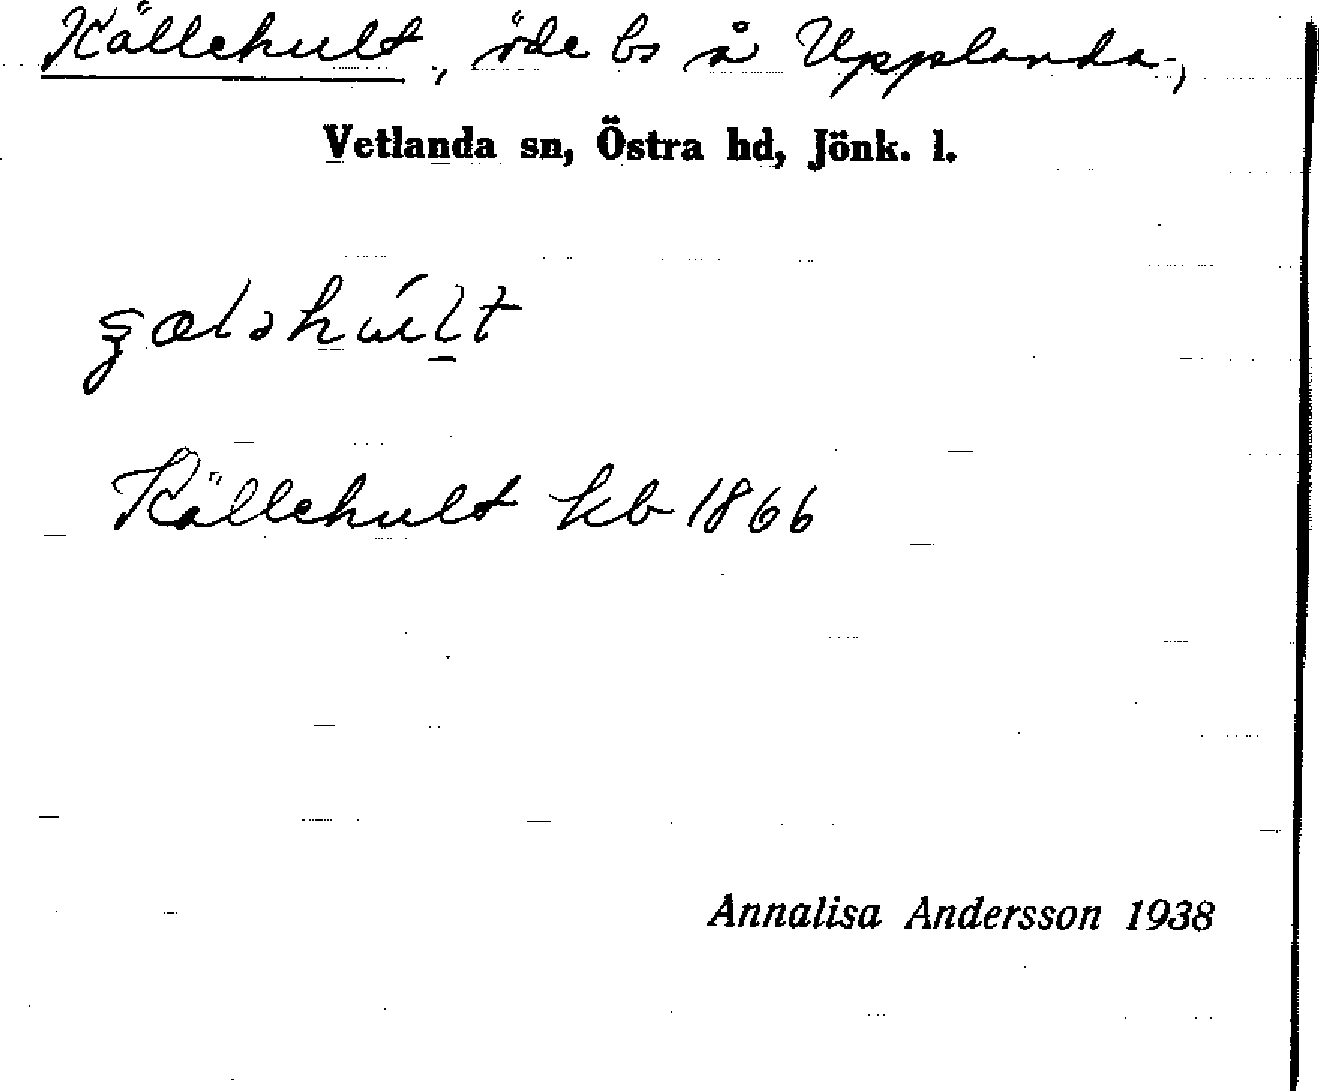 Källehult, öde bs å Upplanda,
Vetlanda sn, Östra hd, Jönk. l.
Källehult kb 1866
Annalisa Andersson 1938